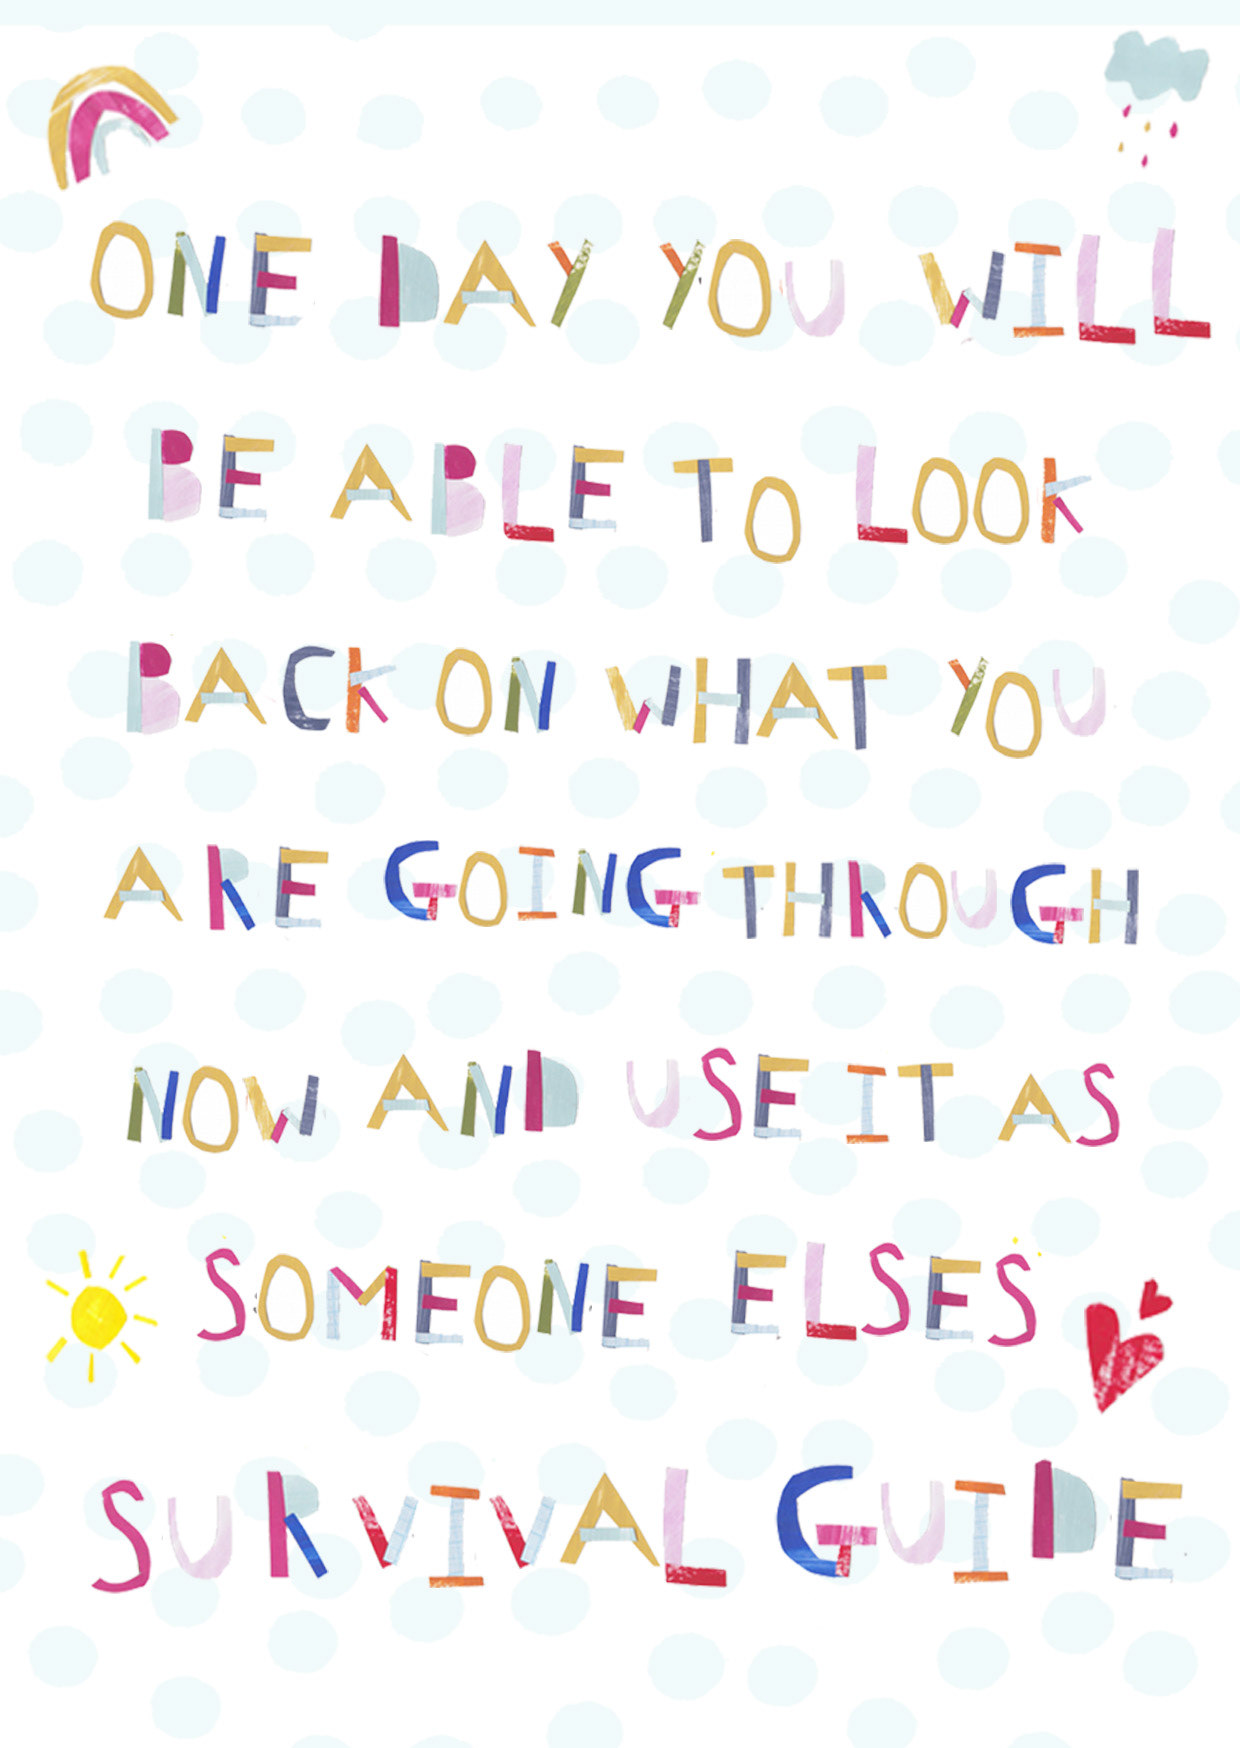 ONE DAY YOU WILL
BE ABLE TO LOOK
BACK ON WHAT YOU
ARE GOING THROUGH
NOW AND USE IT AS
SOMEONE ELSES
SURVIVAL GUIDE